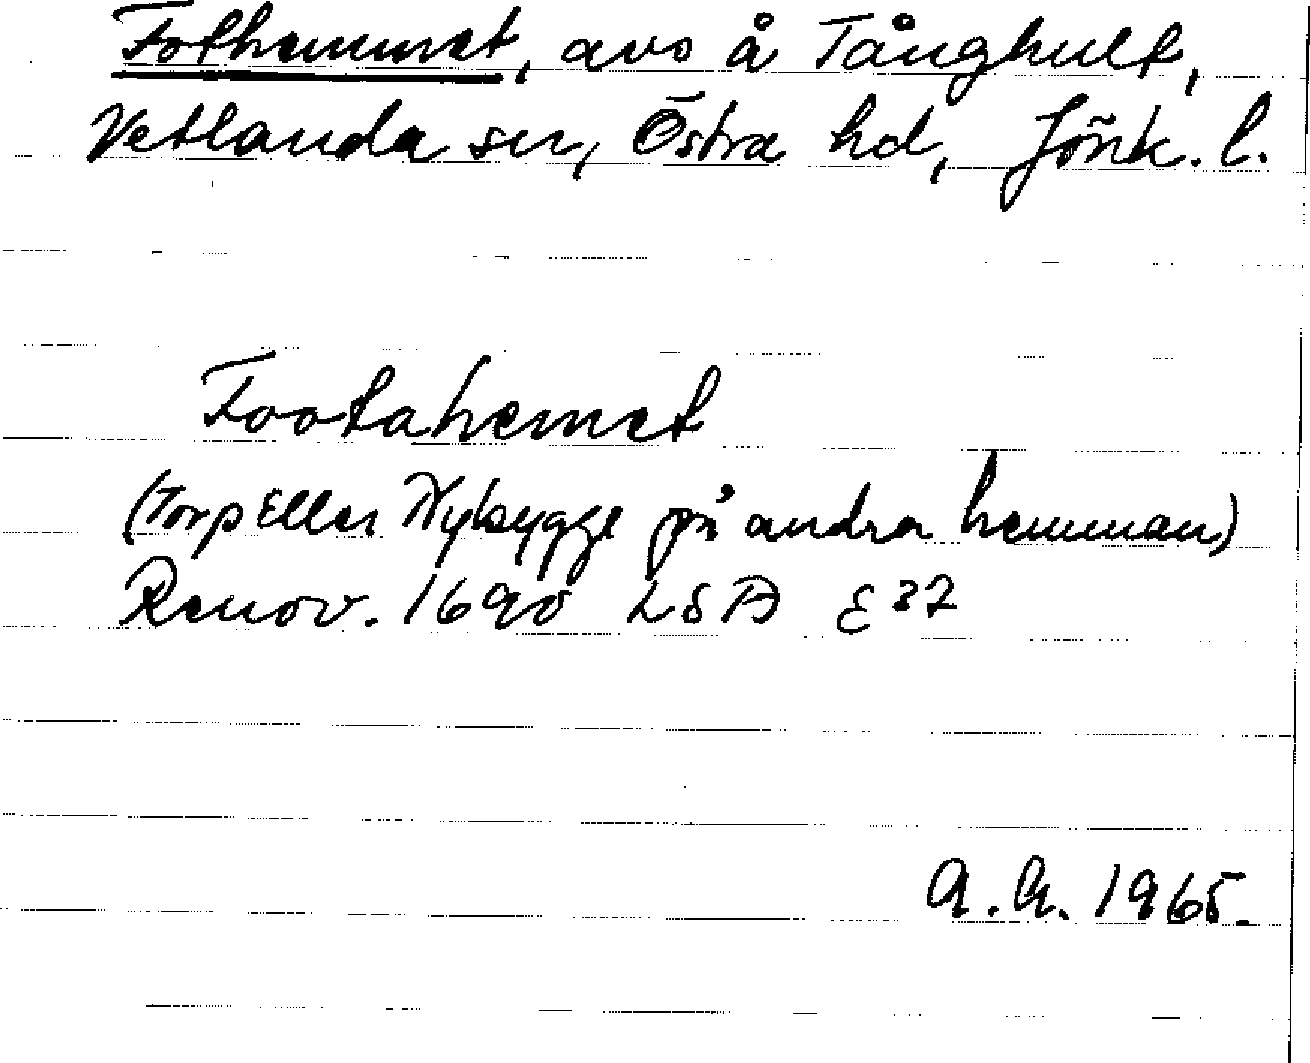 Fothemmet, avs å Tånghult,
Vetlanda sn, Östra hd, Jönk. l.
Footahemet
(Torp Eller Nybygge på andra hemman)
Renov. 1690 LSA E 37
A.A. 1965.